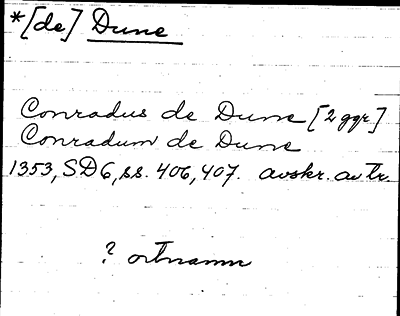 *[de] Dune
Conradus de Dune [2 ggr.]
Conradum de Dune
1353, SD6, ss. 406, 407. avskr. av tr.
? ortnamn